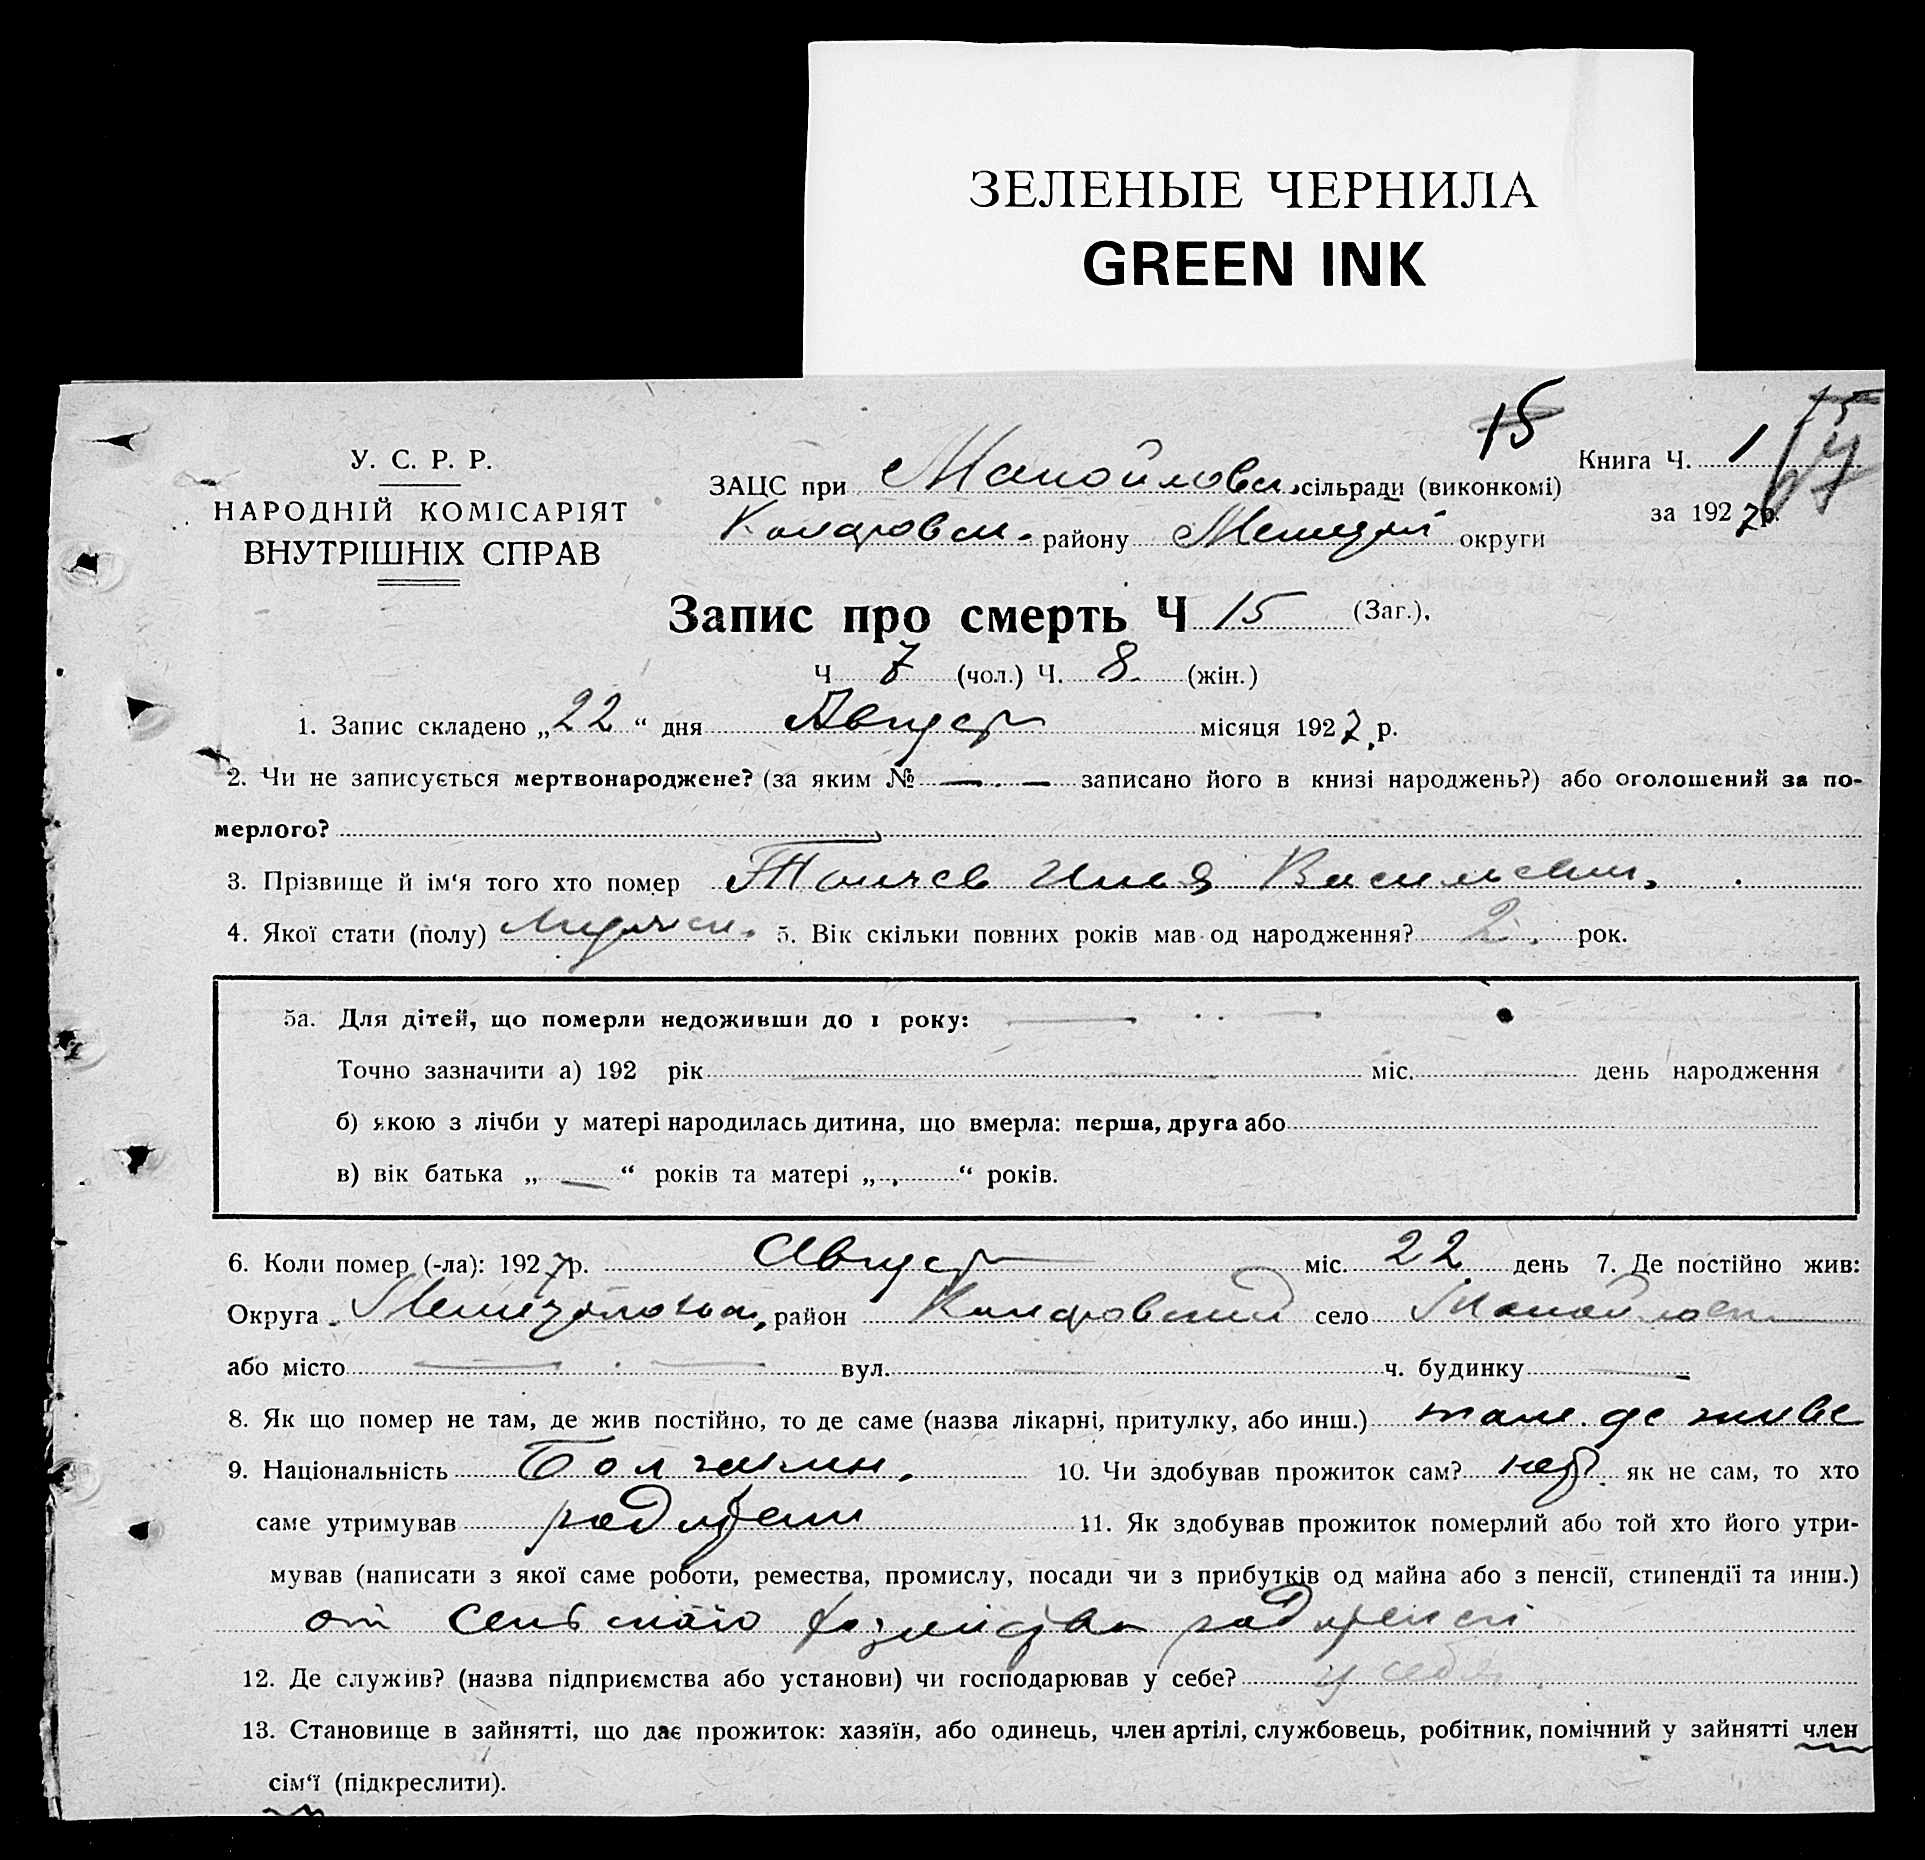 ЗЕЛЕНЫЕ ЧЕРНИЛА
GREEN INK
15
У. С. Р. Р.
НАРОДНІЙ КОМІСАРІЯТ
ВНУТРІШНІХ СПРАВ
Книга Ч. 1
за 1927 р.
ЗАЦС при Манойловск. сільради (виконкомі)
району округи
Запис про смерть Ч 15 (Заг.).
Ч 7 (чол.) Ч. 8 (жін.)
1. Запис складено „22“ дня Август місяця 1927 р.
2. Чи не записується мертвонароджене? (за яким № — — записано його в книзі народжень?) або оголошений за по-
мерлого?
3. Прізвище й ім'я того хто помер Илья Васильевич.
4. Якої стати (полу) 5. Вік скільки повних років мав од народження? 2. рок.
5а. Для дітей, що померли недоживши до 1 року:
Точно зазначити а) 192 рік міс. день народження
б) якою з лічби у матері народилась дитина, що вмерла: перша, друга або
в) вік батька „ — “ років та матері „ “ років.
6. Коли помер (-ла): 1927 р. Август міс. 22 день 7. Де постійно жив:
Округа район село
або місто вул. ч. будинку
8. Як що помер не там, де жив постійно, то де саме (назва лікарні, притулку, або инш.) там де живе
9. Національність Болгарин. 10. Чи здобував прожиток сам? нет як не сам, то хто
саме утримував родители 11. Як здобував прожиток померлий або той хто його утри-
мував (написати з якої саме роботи, ремества, промислу, посади чи з прибутків од майна або з пенсії, стипендії та инш.)
от сельского хозяйства родителей
12. Де служив? (назва підприємства або установи) чи господарював у себе? у себя
13. Становище в зайнятті, що дає прожиток: хазяїн, або одинець, член артілі, службовець, робітник, помічний у зайнятті член
сім'ї (підкреслити).